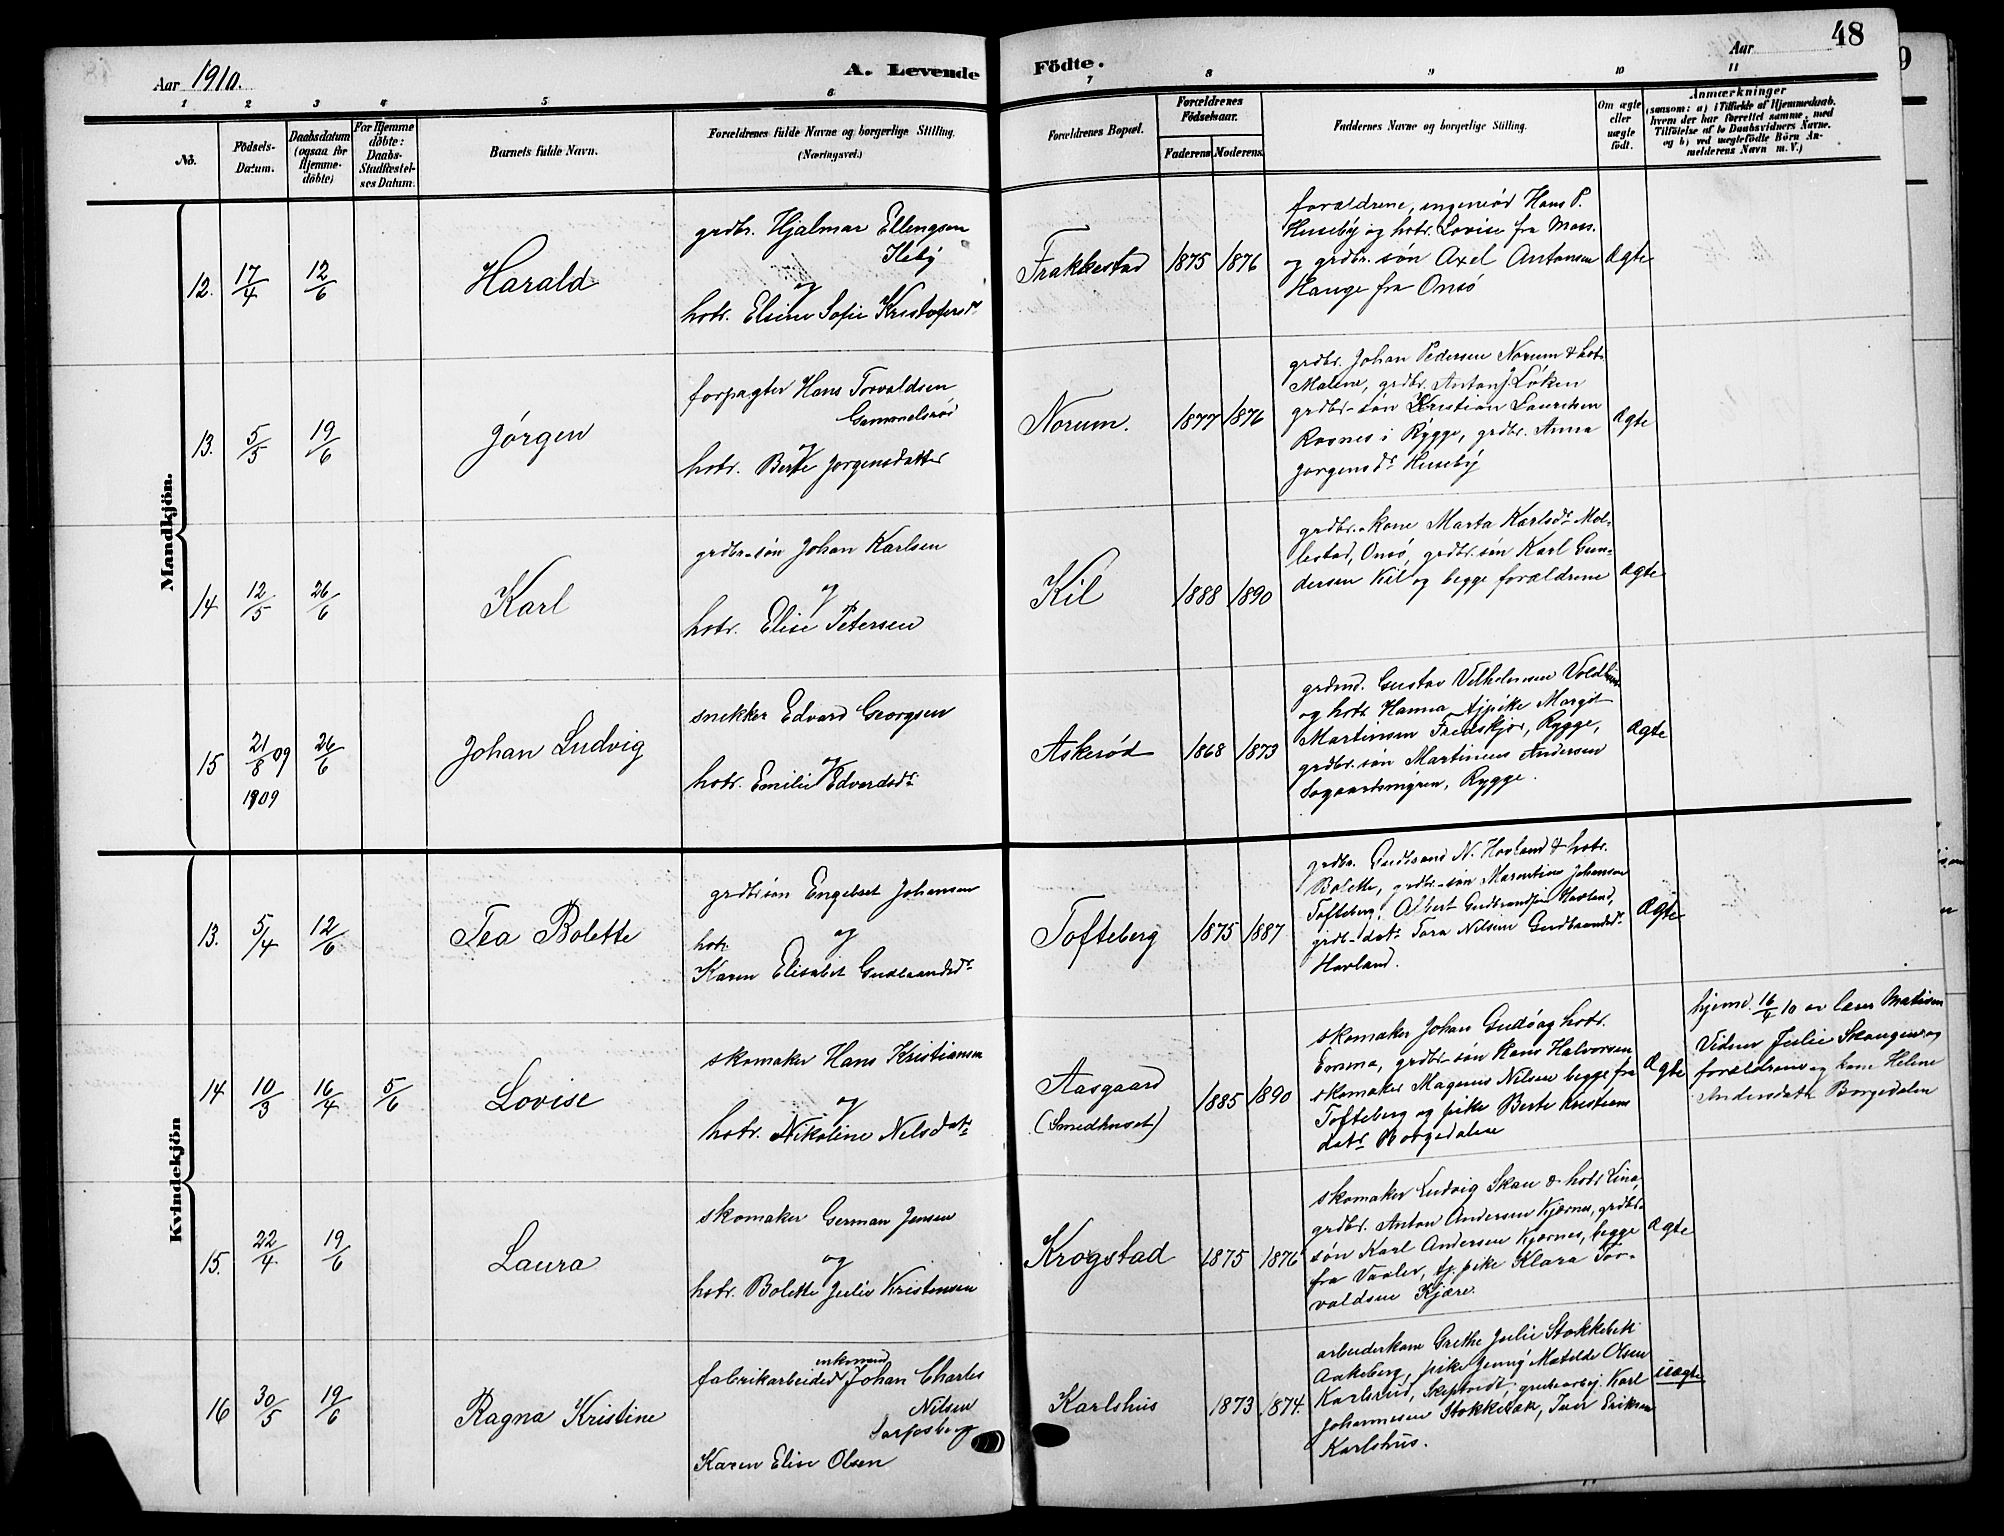 Aar 1910.
A. Levende Födte.
Aar
48
9
1 2 3 4 5 6 7 8 9 10 11
No.
Födsels-
Datum.
Daabsdatum
(ogsaa for
Hjemme-
döbte)
For Hjemme
döbte:
Daabs-
Stadfæstel-
ses Datum.
Barnets fulde Navn.
Forældrenes fulde Navne og borgerlige Stilling.
(Næringsvei.)
Forældrenes Bopæl.
Forældrenes
Födselsaar.
Faderens Moderens
Faddernes Navne og borgerlige Stilling.
Om ægte
eller
uægte
födt.
Anmærkninger
(saasom: a) i Tilfælde af Hjemmedaab.
hvem der har forrettet samme, med
Tilföielse af to Daabsvidners Navne.
og b) ved uægtefödte Börn An-
melderens Navn m. V.)
Mandkjön.
12. 17/4 12/6 Harald
grdbr. Hjalmar Ellengsen
Ileby
og
hotr. Elsine Sofie Kristofersdr
Frakkestad 1875 1876
forældrene, ingeniød Hans P.
Huseby og hotr. Lovise fra Moss.
og grdbr. søn Axel Antonsen
Hauge fra Onsø
ægte
13. 5/5 19/6 Jørgen
forpagter Hans Torvaldsen
Gammelsrød
og
hotr. Berte Jørgensdatter
Norum. 1877 1876
grdbr. Johan Pedersen Norum & hotr
Malene, grdbr. Anton J. Løken
grdbr-søn Kristian Lauritsen
Rosnes i Rygge, grdbr. Anna
Jørgensdr Huseby
ægte
14 12/5 26/6 Karl
grdbr-søn Johan Karlsen
og
hotr. Elise Petersen
Kil 1888 1890
grdbr.-kone Marta Karlsdr Mel-
lestad, Onsø, grdbr. søn Karl Gun-
dersen Kil og begge forældrene
ægte
15 21/8 09 26/6 Johan Ludvig
1909
snekker Edvard Georgsen
og
hotr. Emilie Edvardsdr
Askerød 1868 1873
grdmd. Gustav Vilhelmsen
og hotr Hanna, tjpike Margit
Martinsen Fredskjør, Rygge,
grdbr. søn Martinius Andersen
Rygge.
ægte
Kvindekjön
13. 5/4 12/6 Tea Bolette
grdbrsøn Engebret Johansen
og
hotr
Karen Elisabet Gudbrandsdr
Tofteberg 1875 1887
grdbr. Gudbrand N. Havland & hotr.
Bolette, grdbr-søn Marentius Johansen
Tofteberg, Albert Gudbrandsen Havland,
grdb-datr Tora Nilsine Gudbrandsdr
Havland.
ægte
14 10/3 16/4 5/6 Lovise
skomaker Hans Kristiansen
og
hotr. Nikoline Nilsdatr
Aasgaard
(Smedhuset)
1885 1890
skomaker Johan Gudø og hotr.
Emma, grdbr-søn Hans Halvorsen
skomaker Magnus Nilsen begge fra
Tofteberg og pike Berte Kristians
datr Borgedalen
ægte
hjemd. 16/4 10 av lærer Matisen
Vidner Julie Skaugen og
forældrene og kone Helene
Andersdatr Borgedalen
15. 22/4 19/6 Laura
skomaker German Jensen
og
hotr. Bolette Julie Kristensen
Krogstad 1875 1876
skomaker Ludvig Skau & hotr Lina,
grdbr. Anton Andersen Kjærnes, grdbr-
søn Karl Andersen Kjærnes, begge
fra Vaaler, tj. pike Klara Tor-
valdsen Kjære.
ægte
16 30/5 19/6 Ragna Kristine
enkemand
fabrikarbeider Johan Charles
Nilsen
Sarpsborg
Karen Elise Olsen
Karlshus 1873 1874.
arbeiderkone Grethe Julie Stokkebæk
Aakeberg, pike Jenny Matilde Olsen
Karlsrud, Skiptvedt, grubearbj. Karl
Johannesen Stokkebæk, Iver Eriksen
Karlshus.
uægte